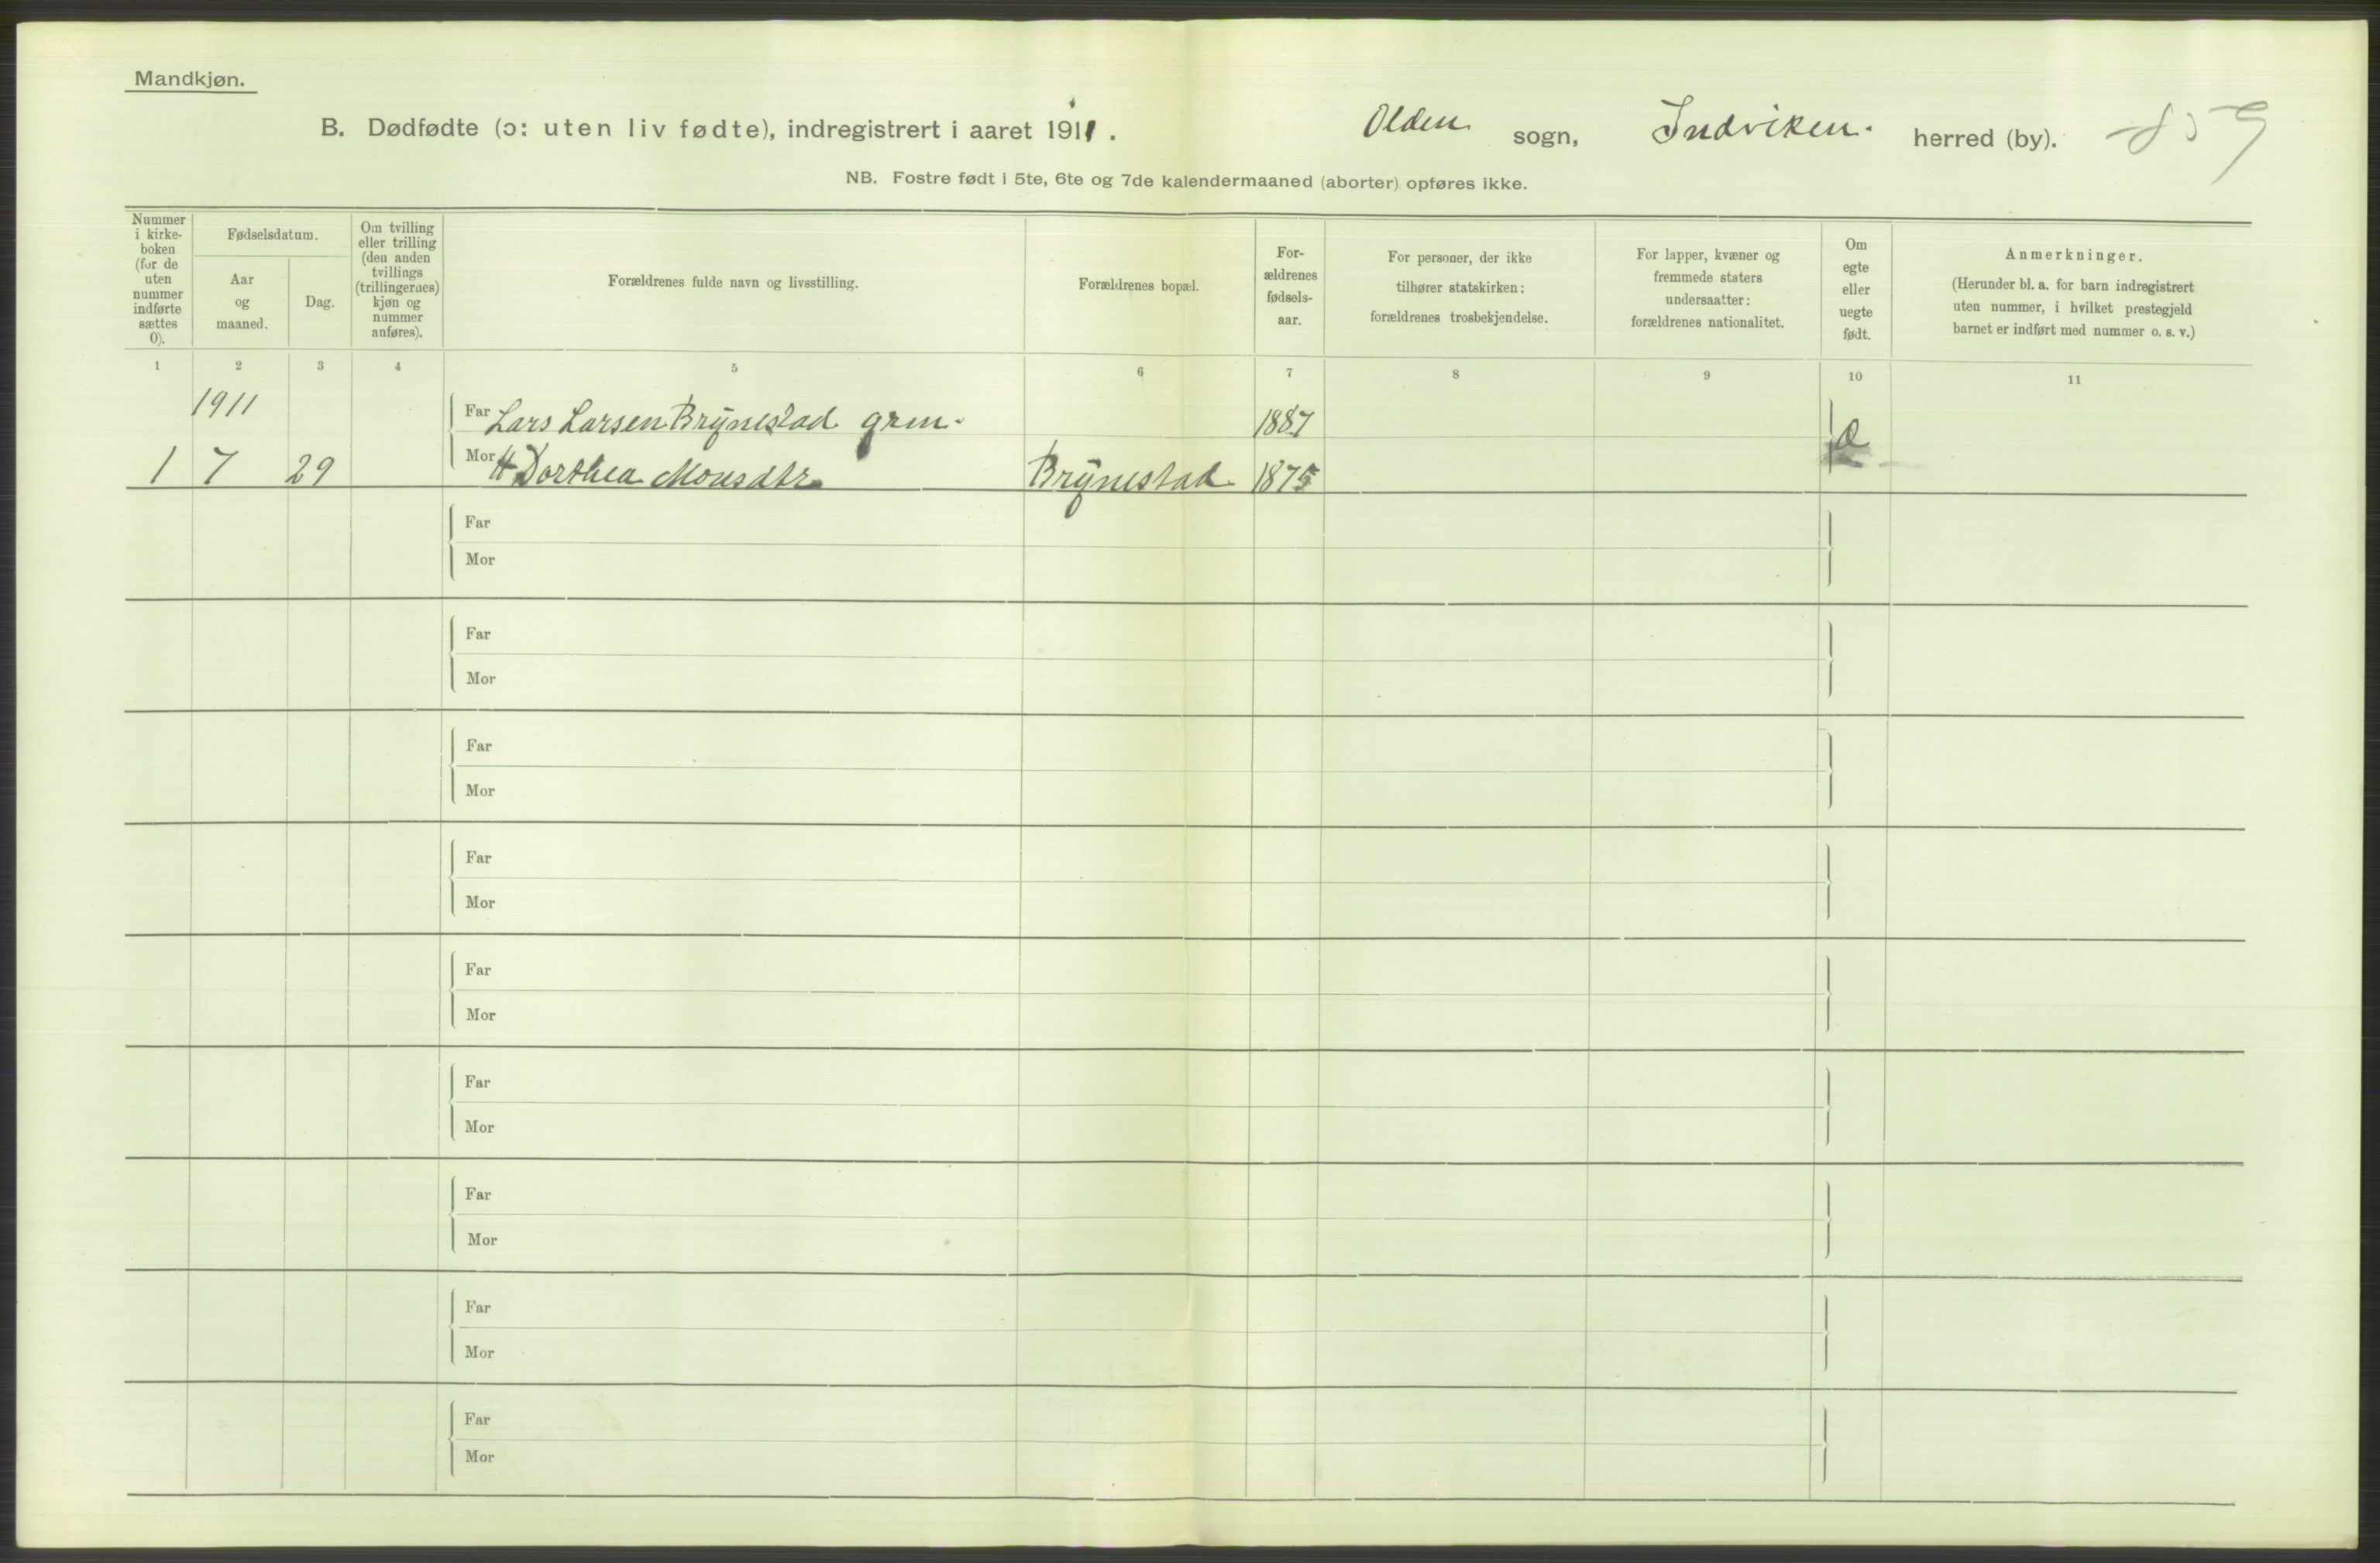 Mandkjøn.
B. Dødfødte (ɔ: uten liv fødte), indregistrert i aaret 1911. Olden sogn, Indviken. herred (by). 859
NB. Fostre født i 5te, 6te og 7de kalendermaaned (aborter) opføres ikke.
Nummer i kirke- boken (for de uten nummer indførte sættes 0).
Fødselsdatum.
Aar og maaned.
Dag.
Om tvilling eller trilling (den anden tvillings (trillingernes) kjøn og nummer anføres).
Forældrenes fulde navn og livsstilling.
Forældrenes bopæl.
For- ældrenes fødsels- aar.
For personer, der ikke tilhører statskirken: forældrenes trosbekjendelse.
For lapper, kvæner og fremmede staters undersaatter: forældrenes nationalitet.
Om egte eller uegte født.
Anmerkninger.
(Herunder bl. a. for barn indregistrert uten nummer, i hvilket prestegjeld barnet er indført med nummer o. s. v.)
1 2 3 4 5 6 7 8 9 10 11
1911 Far Lars Larsen Brÿnestad grm. 1887
1 7 29 Mor H Dorthea Monsdtr Brÿnestad 1875
Far
Mor
Far
Mor
Far
Mor
Far
Mor
Far
Mor
Far
Mor
Far
Mor
Far
Mor
Far
Mor